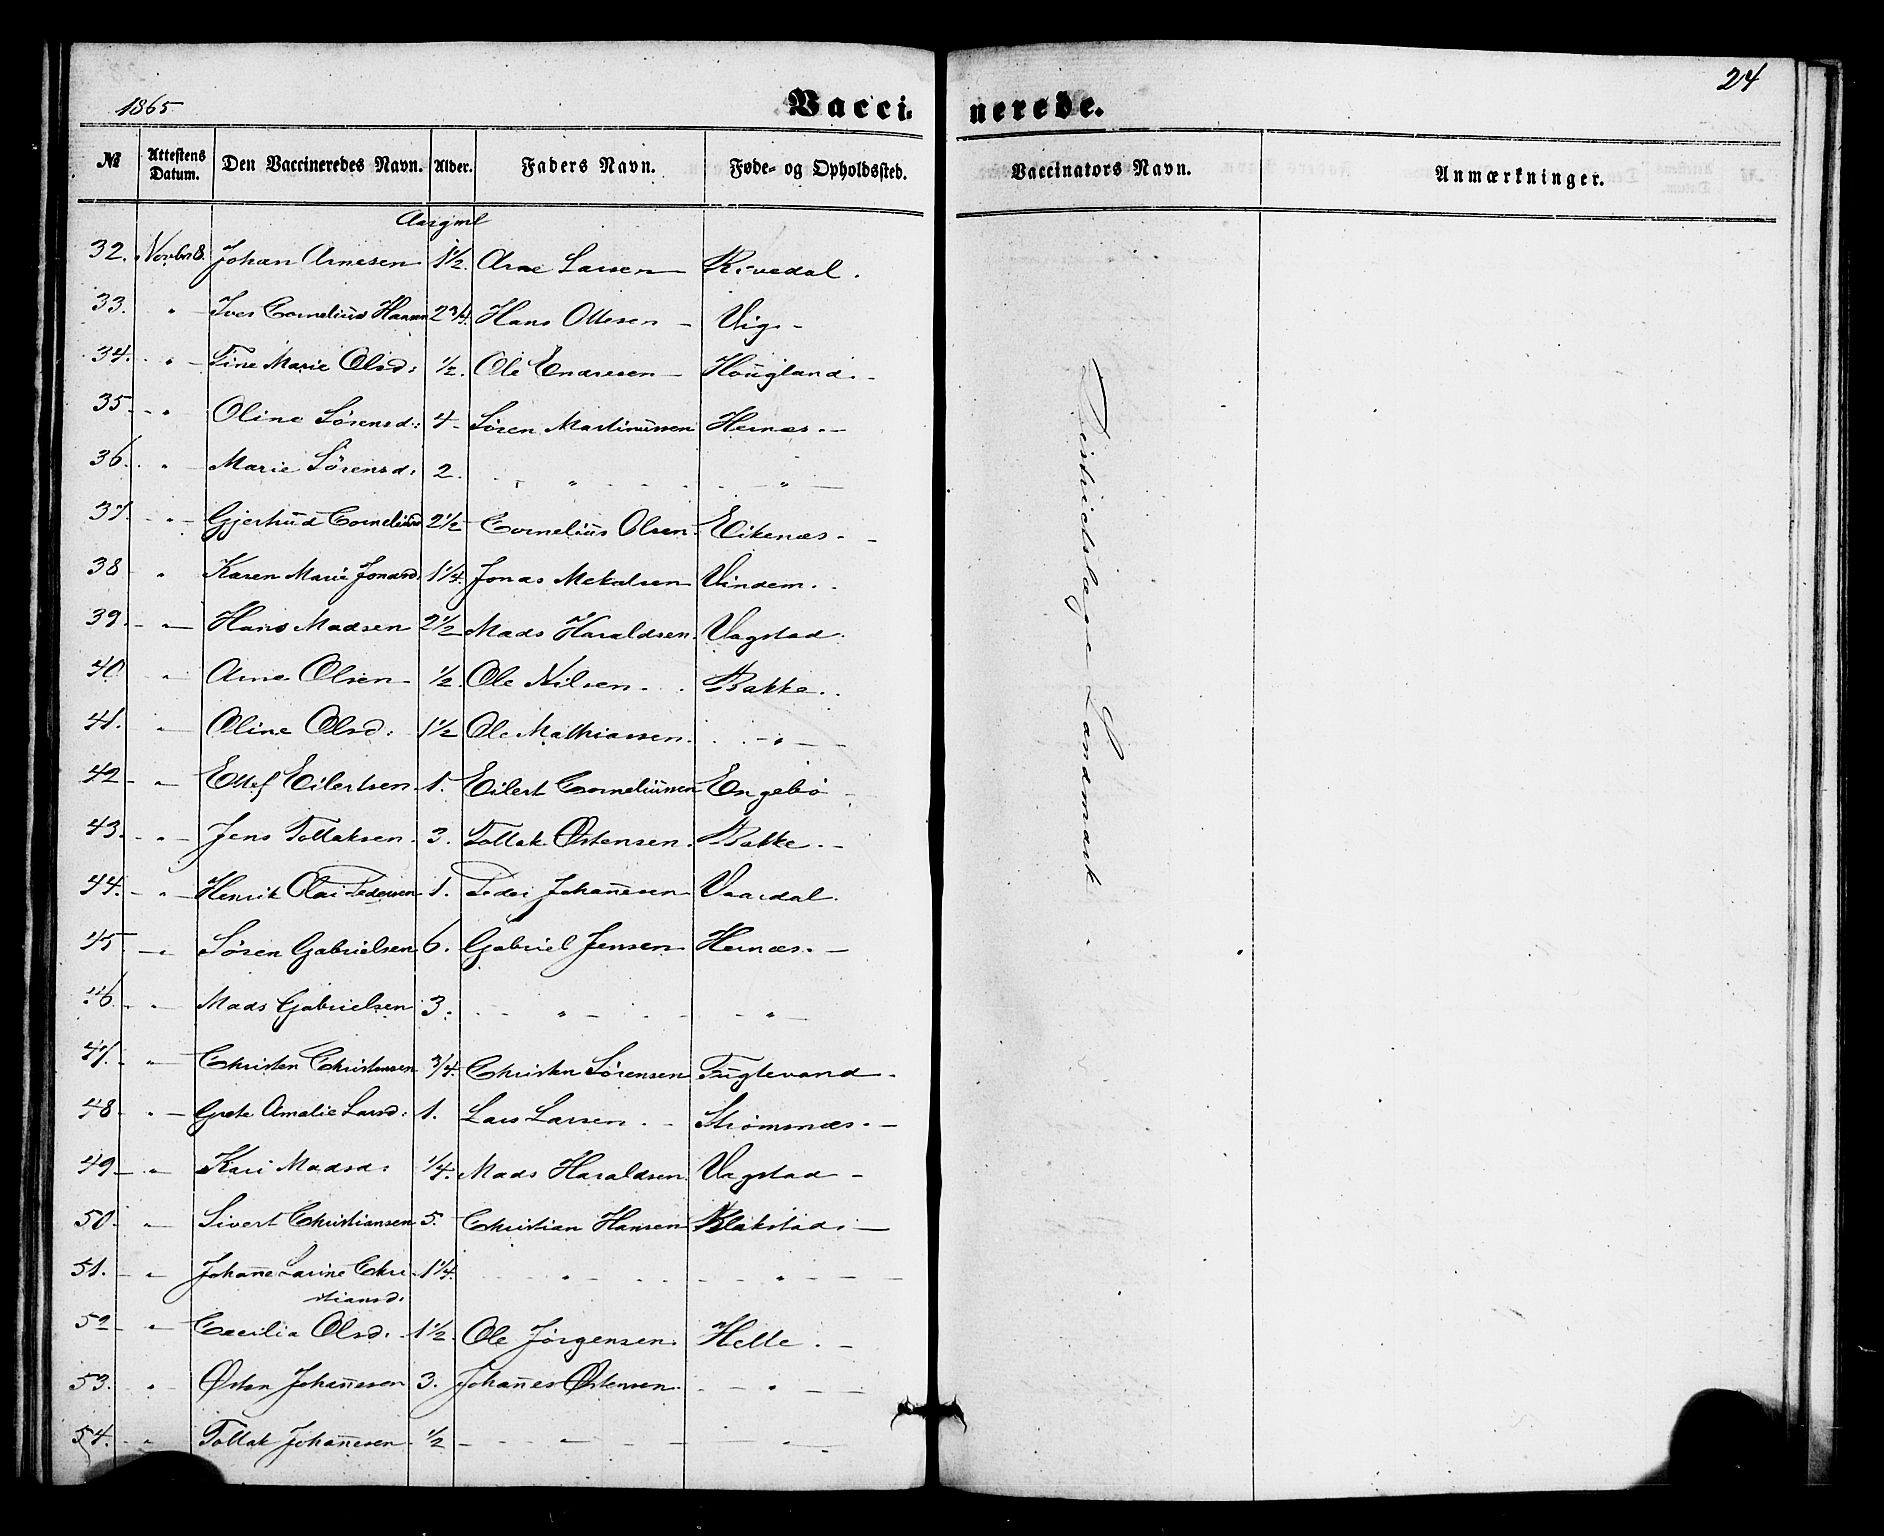 1865 Vaccinerede. 24
№ Attestens Datum. Den Vaccineredes Navn. Alder. Faders Navn. Føde- og Opholdssted. Vaccinators Navn. Anmærkninger.
Aargml
32. Novbr 8. Johan Arnesen 1½. Arne Larsen Rivedal.
33. " Iver Cornelius Hansen 2¾. Hans Ottesen - Vig -
34. " Tine Marie Olsd: ½. Ole Endresen - Hougland. -
35. " Oline Sörensd: 4 - Sören Martinussen Hernæs. -
36. " Marie Sörensd: 2. " "
37. " Gjertrud Corneliusd 2½ Cornelius Olsen. Eikenæs. -
38 " Karen Marie Jonasd. 1¼. Jonas Mekalsen Vindem. .
39. " Hans Madsen 2½ Mads Haraldsen. Vagstad.
40 " Arne Olsen - ½. Ole Nilsen. Bakke. .
41. " Oline Olsd: 1½ Ole Mathiassen. "
42 - " Ellef Eilertsen. 1. Eilert Corneliussen Engebö -
43. " Jens Tollaksen. 3. Tollak Østensen. Bakke. -
44. " Henrik Olai Pedersen. 1. Peder Johannesen Vaardal.
45 " Sören Gabrielsen 6. Gabriel Jensen Hernæs. -
46. " Mads Gabrielsen 3. " "
47. " Christen Christensen ¾. Christen Sörensen Fuglevand.
48 - " Grete Amalie Larsd: 1. Lars Larsen. Strömsnæs. -
49 - " Kari Madsd: ¼. Mads Haraldsen. Vagstad -
50. " Sivert Christiansen 5. Christian Hansen Blakstad. -
51. " Johanne Larine Chri- 1¼. " "
stiansd:
52 - " Cecilia Olsd. 1½. Ole Jörgensen. Helle. -
53. " Østen Johannesen 3. Johannes Østensen. "
54. " Tollak Johannesen ½ " "
Districtslæge Landmark